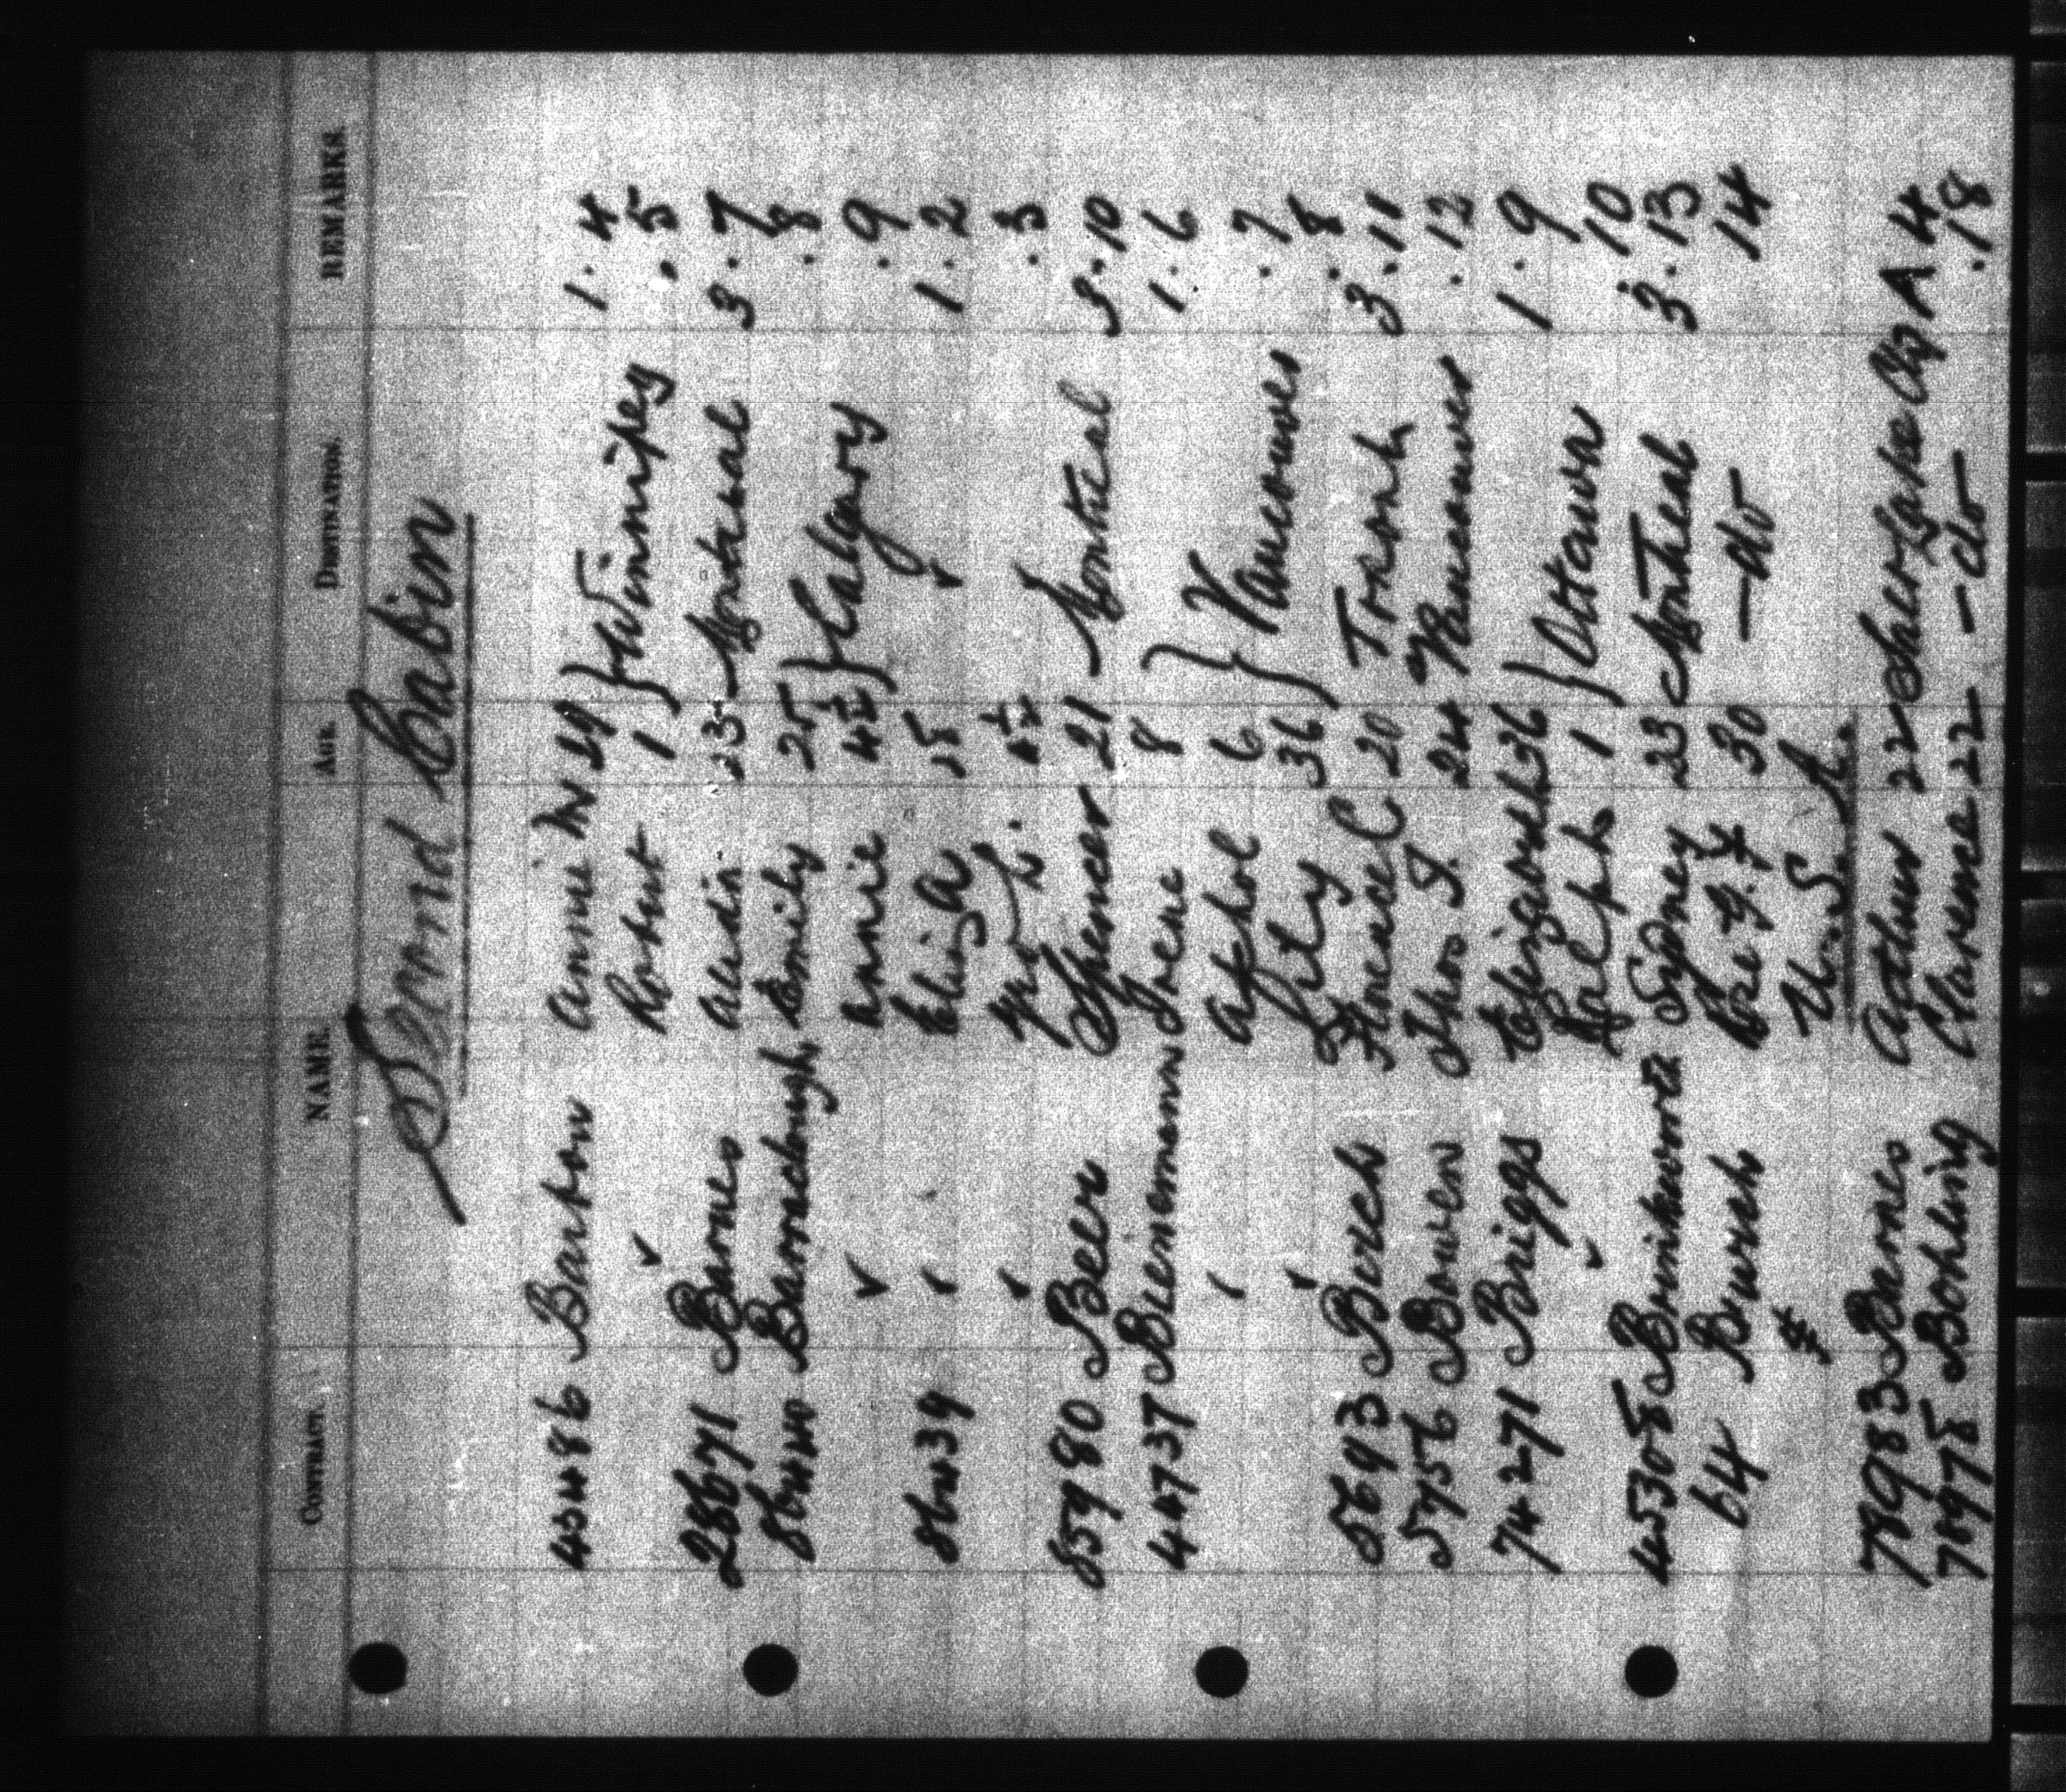 CONTRACT. NAME AGE. DESTINATION. REMARKS.
Second Cabin
45486 Barton Annie M 29 } Winnipeg 1. 4
✓ Robert 1 . 5
28671 Barnes 23 Montreal 3. 7
Barraclough Emily 25 } Calgary . 8
✓ Annie 4½ . 9
86439 ✓ Eliza ✓ 1. 2
✓ . 3
85980 Beer Spencer 21 Montreal 3. 10
44737 Bienemann Irene 8 } Vancouver 1. 6
✓ 6 . 7
✓ 36 8
5693 Birch Florence C 20 Toronto 3. 11
5756 Bowen Thos J. 24 Vancouver . 12
74271 Briggs 36 } Ottawa 1. 9
✓ Ralph 1 10
45305 Brinkworth Sidney 23 Montreal 3. 13
64 Burch 30 — do 14
U.S.A.
78983 Barnes Arthur 22 A 4
78975 Bohling Clarence 22 — do . 18